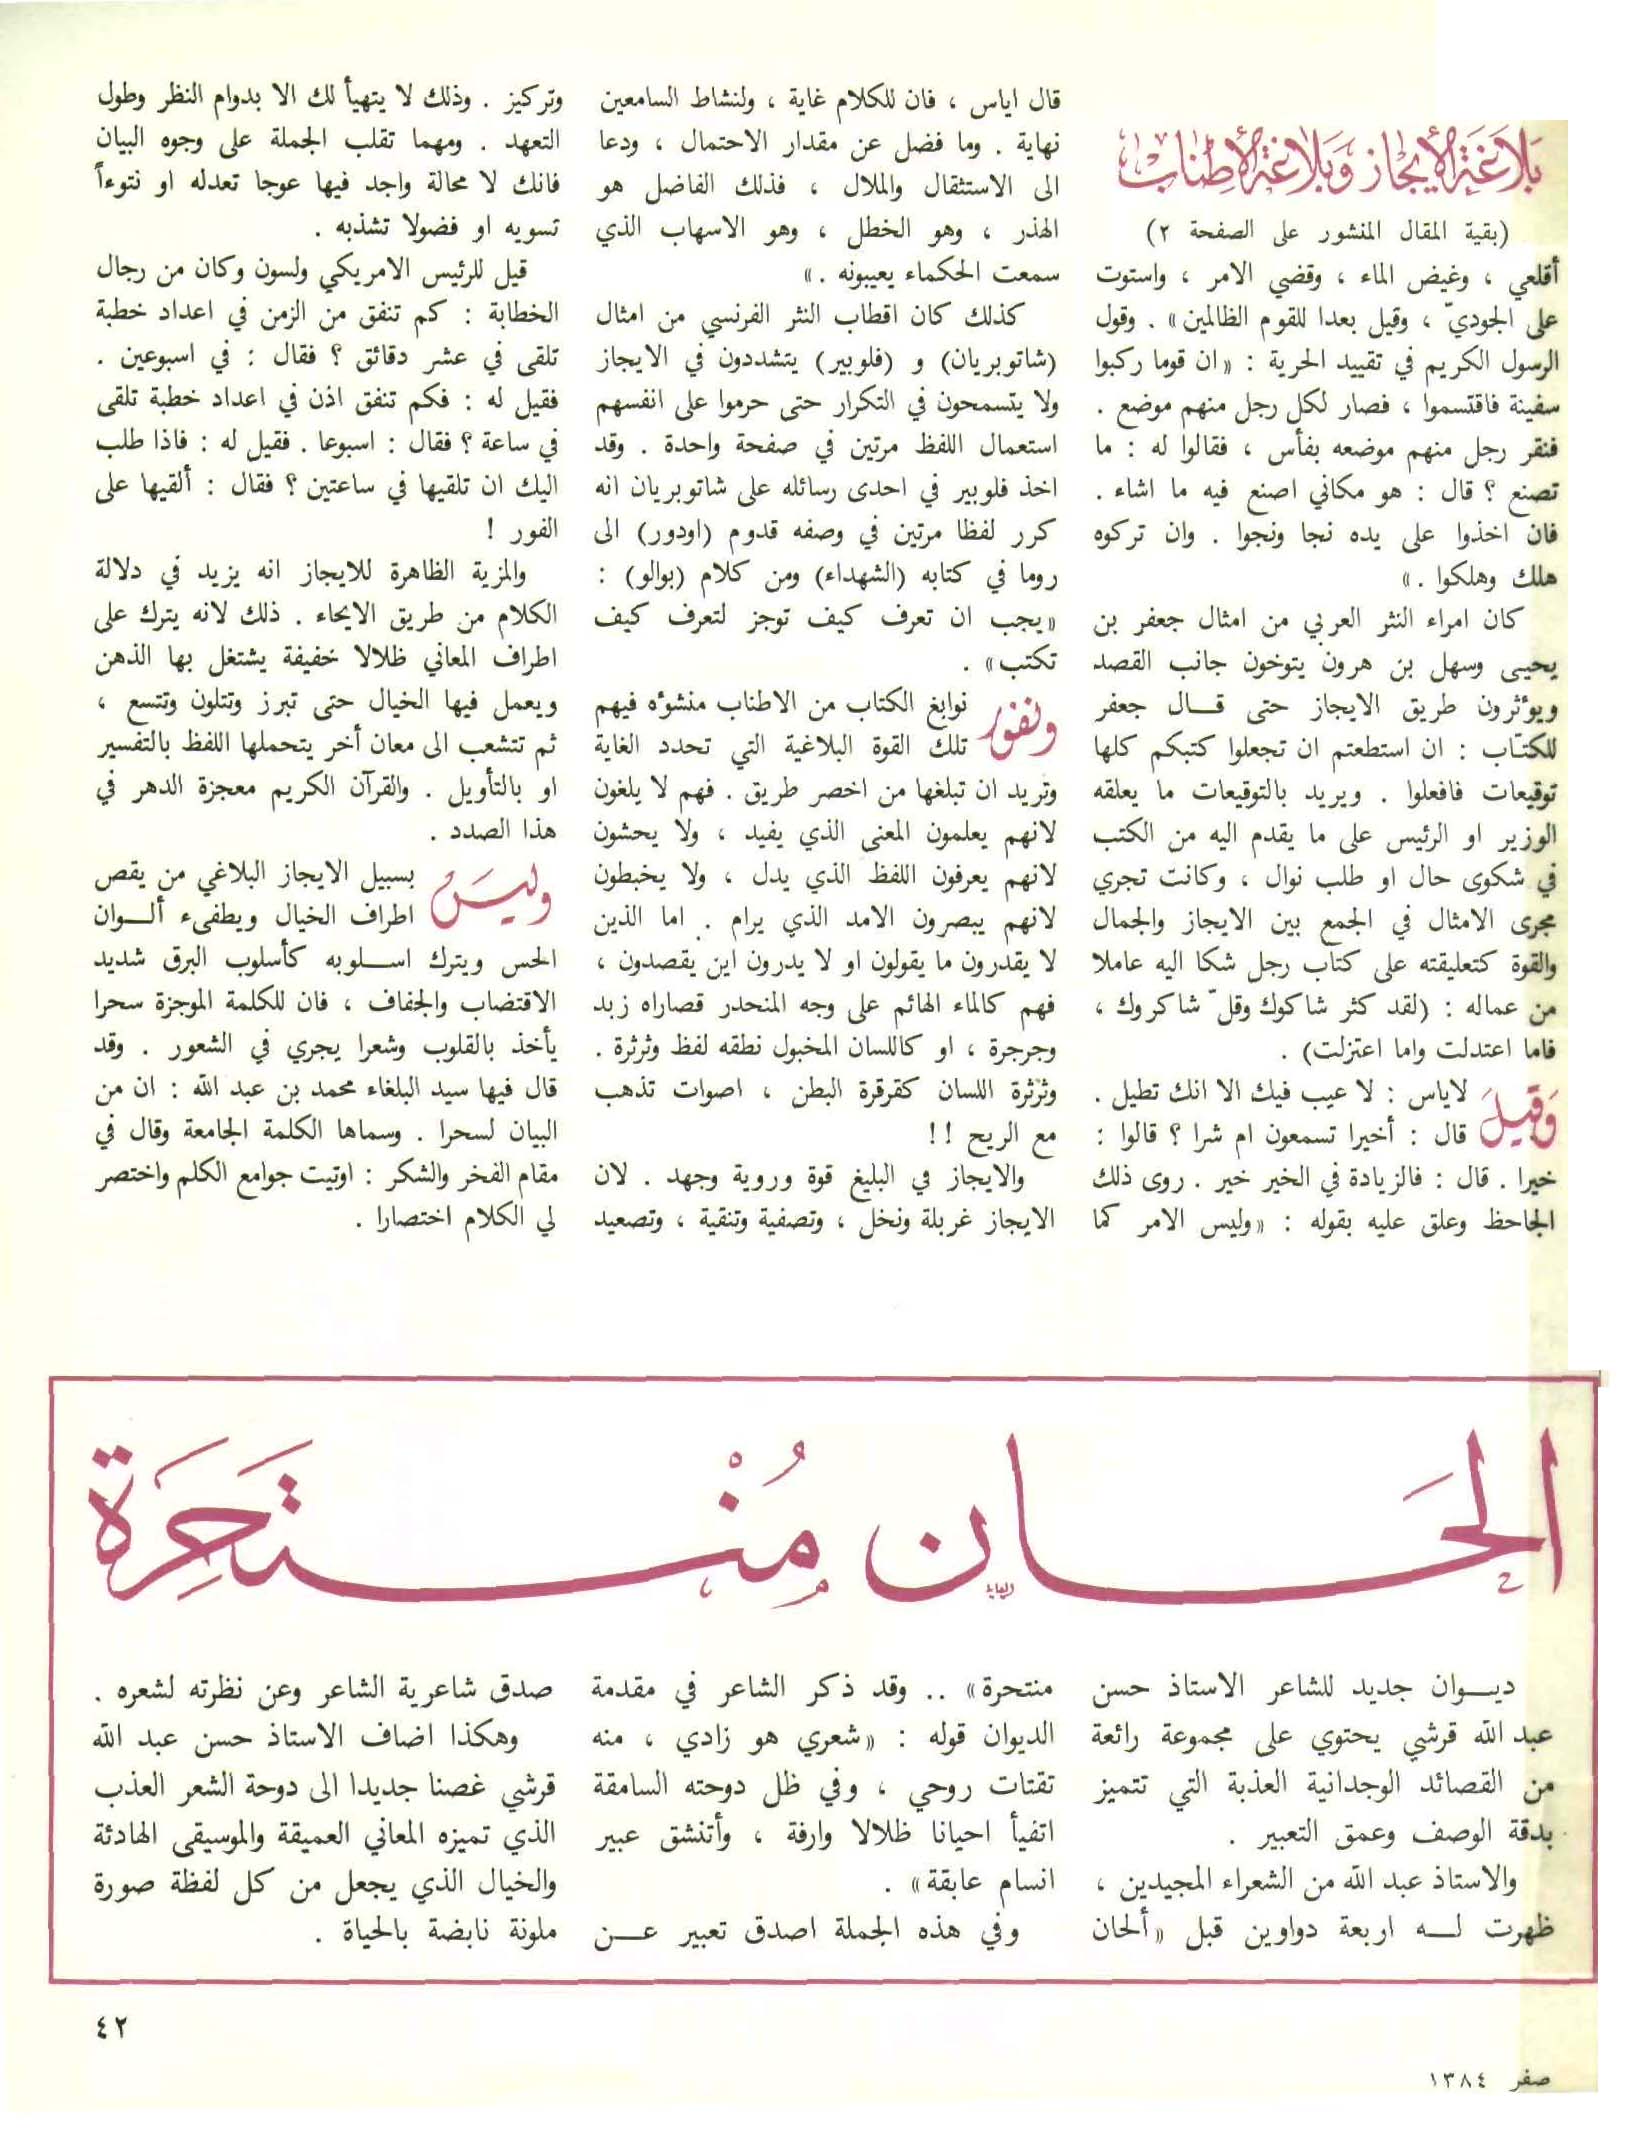 بَلَاغَة الْإِيجَاز وَبَلَاغَة الْإِطْنَاب
(بقية المقال المنشور على الصفحة ٢)
أقلعي ، وغيض الماء ، وقضي الامر ، واستوت
على الجوديّ ، وقيل بعدا للقوم الظالمين» . وقول
الرسول الكريم في تقييد الحرية : «ان قوما ركبوا
سفينة فاقتسموا ، فصار لكل رجل منهم موضع .
فنقر رجل منهم موضعه بفأس ، فقالوا له : ما
تصنع ؟ قال : هو مكاني اصنع فيه ما اشاء .
فان اخذوا على يده نجا ونجوا . وان تركوه
هلك وهلكوا .»
كان امراء النثر العربي من امثال جعفر بن
يحيى وسهل بن هرون يتوخون جانب القصد
ويؤثرون طريق الايجاز حتى قال جعفر
للكتّاب : ان استطعتم ان تجعلوا كتبكم كلها
توقيعات فافعلوا . ويريد بالتوقيعات ما يعلقه
الوزير او الرئيس على ما يقدم اليه من الكتب
في شكوى حال او طلب نوال ، وكانت تجري
مجرى الامثال في الجمع بين الايجاز والجمال
والقوة كتعليقته على كتاب رجل شكا اليه عاملا
من عماله : (لقد كثر شاكوك وقلّ شاكروك ،
فاما اعتدلت واما اعتزلت) .
وَقيلَ لاياس : لا عيب فيك الا انك تطيل .
قال : أخيرا تسمعون ام شرا ؟ قالوا :
خيرا . قال : فالزيادة في الخير خير . روى ذلك
الجاحظ وعلق عليه بقوله : «وليس الامر كما
قال اياس ، فان للكلام غاية ، ولنشاط السامعين
نهاية . وما فضل عن مقدار الاحتمال ، ودعا
الى الاستثقال والملال ، فذلك الفاضل هو
الهذر ، وهو الخطل ، وهو الاسهاب الذي
سمعت الحكماء يعيبونه .»
كذلك كان اقطاب النثر الفرنسي من امثال
(شاتوبريان) و (فلوبير) يتشددون في الايجاز
ولا يتسمحون في التكرار حتى حرموا على انفسهم
استعمال اللفظ مرتين في صفحة واحدة . وقد
اخذ فلوبير في احدى رسائله على شاتوبريان انه
كرر لفظا مرتين في وصفه قدوم (اودور) الى
روما في كتابه (الشهداء) ومن كلام (بوالو) :
«يجب ان تعرف كيف توجز لتعرف كيف
تكتب» .
ونفور نوابغ الكتاب من الاطناب منشؤه فيهم
تلك القوة البلاغية التي تحدد الغاية
وتريد ان تبلغها من اخصر طريق . فهم لا يلغون
لانهم يعلمون المعنى الذي يفيد ، ولا يحشون
لانهم يعرفون اللفظ الذي يدل ، ولا يخبطون
لانهم يبصرون الامد الذي يرام . اما الذين
لا يقدرون ما يقولون او لا يدرون اين يقصدون ،
فهم كالماء الهائم على وجه المنحدر قصاراه زبد
وجرجرة ، او كاللسان المخبول نطقه لفظ وثرثرة .
وثرثرة اللسان كقرقرة البطن ، اصوات تذهب
مع الريح !!
والايجاز في البليغ قوة وروية وجهد . لان
الايجاز غربلة ونخل ، وتصفية وتنقية ، وتصعيد
وتركيز . وذلك لا يتهيأ لك الا بدوام النظر وطول
التعهد . ومهما تقلب الجملة على وجوه البيان
فانك لا محالة واجد فيها عوجا تعدله او نتوءاً
تسويه او فضولا تشذبه .
قيل للرئيس الامريكي ولسون وكان من رجال
الخطابة : كم تنفق من الزمن في اعداد خطبة
تلقى في عشر دقائق ؟ فقال : في اسبوعين .
فقيل له : فكم تنفق اذن في اعداد خطبة تلقى
في ساعة ؟ فقال : اسبوعا . فقيل له : فاذا طلب
اليك ان تلقيها في ساعتين ؟ فقال : ألقيها على
الفور !
والمزية الظاهرة للايجاز انه يزيد في دلالة
الكلام من طريق الايحاء . ذلك لانه يترك على
اطراف المعاني ظلالا خفيفة يشتغل بها الذهن
ويعمل فيها الخيال حتى تبرز وتتلون وتتسع ،
ثم تتشعب الى معان أخر يتحملها اللفظ بالتفسير
او بالتأويل . والقرآن الكريم معجزة الدهر في
هذا الصدد .
وليسَ بسبيل الايجاز البلاغي من يقص
اطراف الخيال ويطفىء ألوان
الحس ويترك اسلوبه كأسلوب البرق شديد
الاقتضاب والجفاف ، فان للكلمة الموجزة سحرا
يأخذ بالقلوب وشعرا يجري في الشعور . وقد
قال فيها سيد البلغاء محمد بن عبد الله : ان من
البيان لسحرا . وسماها الكلمة الجامعة وقال في
مقام الفخر والشكر : اوتيت جوامع الكلم واختصر
لي الكلام اختصارا .
الحَان مُنْتَحِرَة
ديوان جديد للشاعر الاستاذ حسن
عبد الله قرشي يحتوي على مجموعة رائعة
من القصائد الوجدانية العذبة التي تتميز
بدقة الوصف وعمق التعبير .
والاستاذ عبد الله من الشعراء المجيدين ،
ظهرت له اربعة دواوين قبل «ألحان
منتحرة» .. وقد ذكر الشاعر في مقدمة
الديوان قوله : «شعري هو زادي ، منه
تقتات روحي ، وفي ظل دوحته السامقة
اتفيأ احيانا ظلالا وارفة ، وأتنشق عبير
انسام عابقة» .
وفي هذه الجملة اصدق تعبير عن
صدق شاعرية الشاعر وعن نظرته لشعره .
وهكذا اضاف الاستاذ حسن عبد الله
قرشي غصنا جديدا الى دوحة الشعر العذب
الذي تميزه المعاني العميقة والموسيقى الهادئة
والخيال الذي يجعل من كل لفظة صورة
ملونة نابضة بالحياة .
٤٢
صفر ١٣٨٤